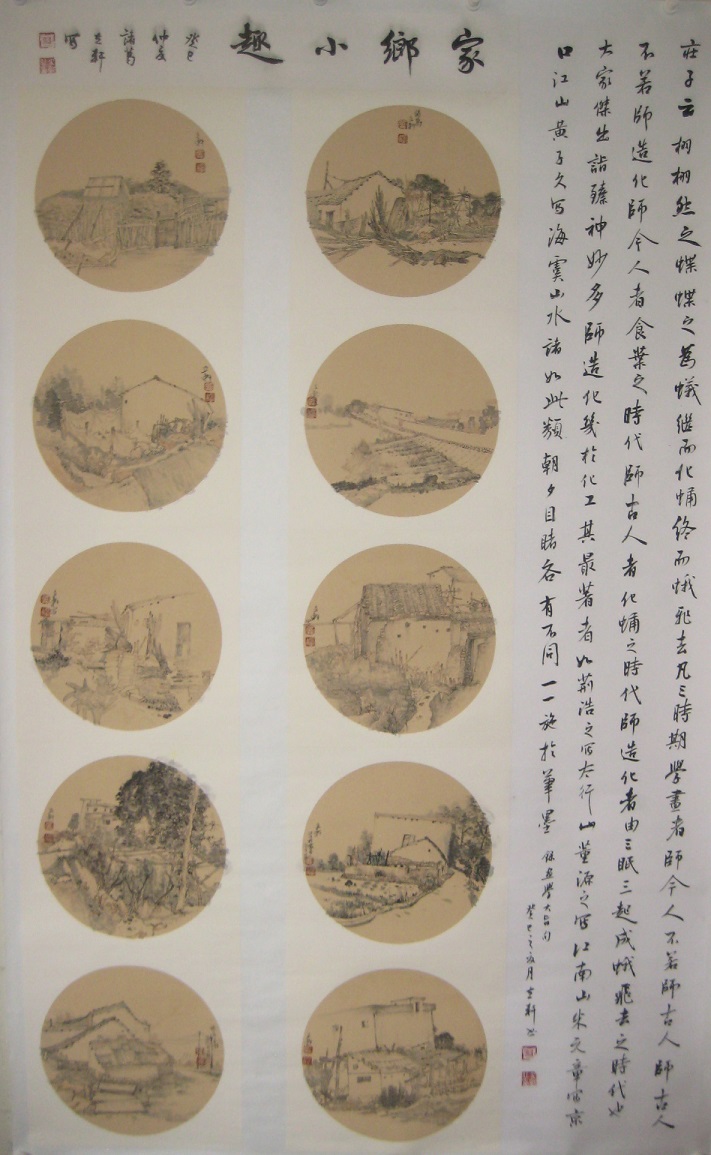 莊子云栩栩然之蝶蝶之為蟻繼而化蛹終而蛾飛去凡三時期學畫者師今人不若師古人師古人
不若師造化師今人者食葉之時代師古人者化蛹之時代師造化者由三眠三起成蛾飛去之時代也
大家傑出詣臻神妙多師造化幾於化工其最著者如荊浩之寫太行山董源之寫江南山米元章寫京
口江山黃子久寫海虞山水諸如此類朝夕目睹各有不同一一施於筆墨
錄畫學大旨句
癸巳之夏月
家鄉小趣
癸巳
仲夏
諸葛
寫